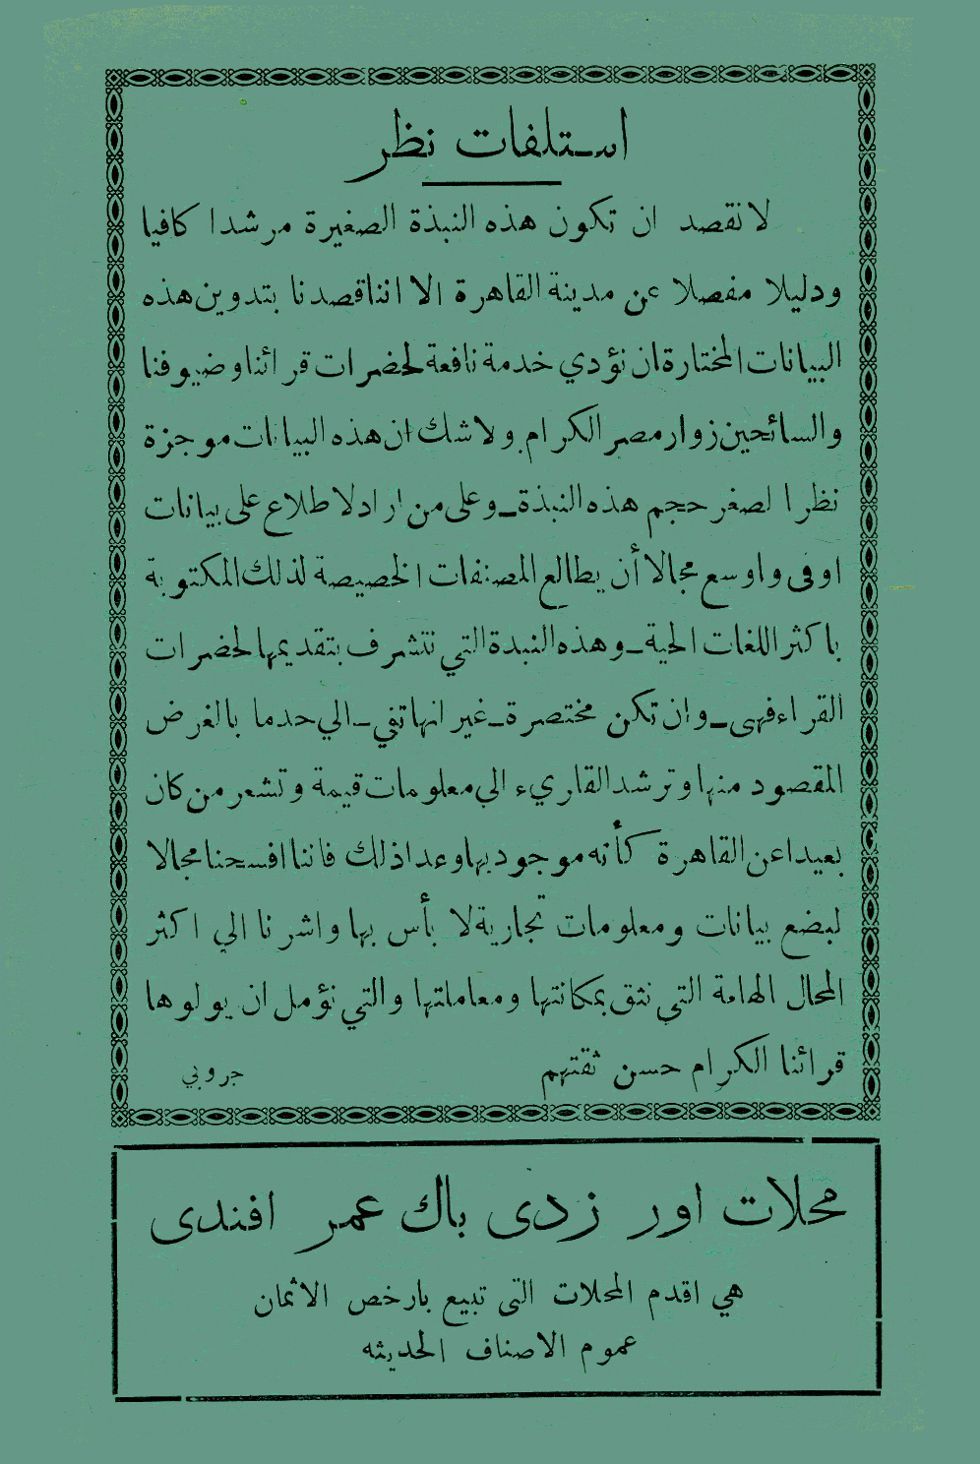 استلفات نظر
لا نقصد ان تكون هذه النبذة الصغيرة مرشدا كافيا
ودليلا مفصلا عن مدينة القاهرة الا اننا قصدنا بتدوين هذه
البيانات المختارة ان نؤدي خدمة نافعة لحضرات قرائنا وضيوفنا
والسائحين زوار مصر الكرام ولا شك ان هذه البيانات موجزة
نظرا لصغر حجم هذه النبذة ــ وعلى من اراد لاطلاع على بيانات
اوفى واوسع مجالا أن يطالع المصنفات الخصيصة لذلك المكتوبة
باكثر اللغات الحية ــ وهذه النبدة التي نتشرف بتقديمها لحضرات
القراء فهى ــ وان تكن مختصرة ــ غير انها تفي ــ الي حدما بالغرض
المقصود منها وترشد القاريء الي معلومات قيمة وتشعر من كان
بعيدا عن القاهرة كأنه موجود بها وعدا ذلك فاننا افسحنا مجالا
لبضع بيانات ومعلومات تجارية لا بأس بها واشرنا الي اكثر
المحال الهامة التي نثق بمكانتها ومعاملتها والتي نؤمل ان يولوها
قرائنا الكرام حسن ثقتهم
جروبي
محلات اور زدى باك عمر افندى
هي اقدم المحلات التى تبيع بارخص الاثمان
عموم الاصناف الحديثه